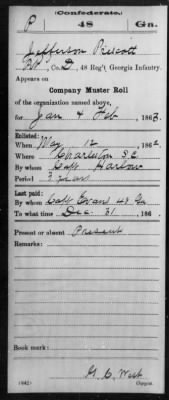 (Confederate.)
P 48 Ga.
Jefferson Prescott
Pvt., Co. D, 48 Reg't Georgia Infantry.
Appears on
Company Muster Roll
of the organization named above,
for Jan & Feb, 1863.
Enlisted:
When May 12, 1862.
Where Charleston S.C.
By whom Capt Harlow
Period 3 years
Last paid:
By whom Capt Evans 48 Ga
To what time Dec. 31, 186
Present or absent Present
Remarks:
Book mark:
G. C. West
(642) Copyist.